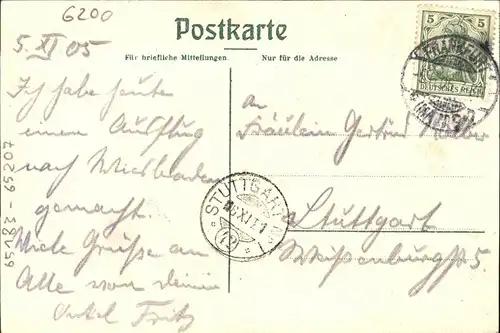 6200
Postkarte
5. XI 05
Für briefliche Mitteilungen
Nur für die Adresse
5 5
DEUTSCHES REICH
Ich habe heute
einen Ausflug
nach Wiesbaden
gemacht.
Viele Grüße an
Alle von deinem
Onkel Fritz
65183-65207
STUTTGART No. 1
an
Fräulein Gertrud
Stuttgart
Weißenburgstr 5